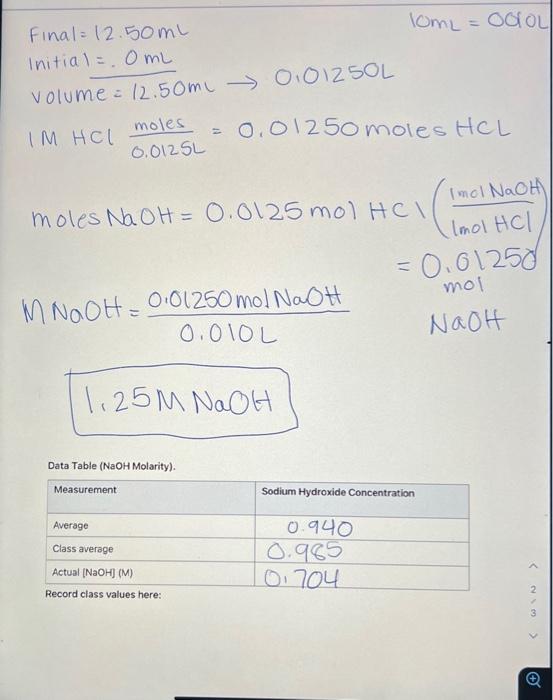 Final = 12.50mL
10mL = 0.010L
Initial = . 0 mL
Volume = 12.50mL → 0.01250L
1 M HCl moles/0.0125L = 0.01250 moles HCL
moles NaOH = 0.0125 mol HCl (1mol NaOH/1mol HCl)
= 0.01250
mol
NaOH
M NaOH = 0.01250 mol NaOH/0.010L
1.25 M NaOH
Data Table (NaOH Molarity).
Measurement Sodium Hydroxide Concentration
Average 0.940
Class average 0.985
Actual [NaOH] (M) 0.704
Record class values here:
2 / 3